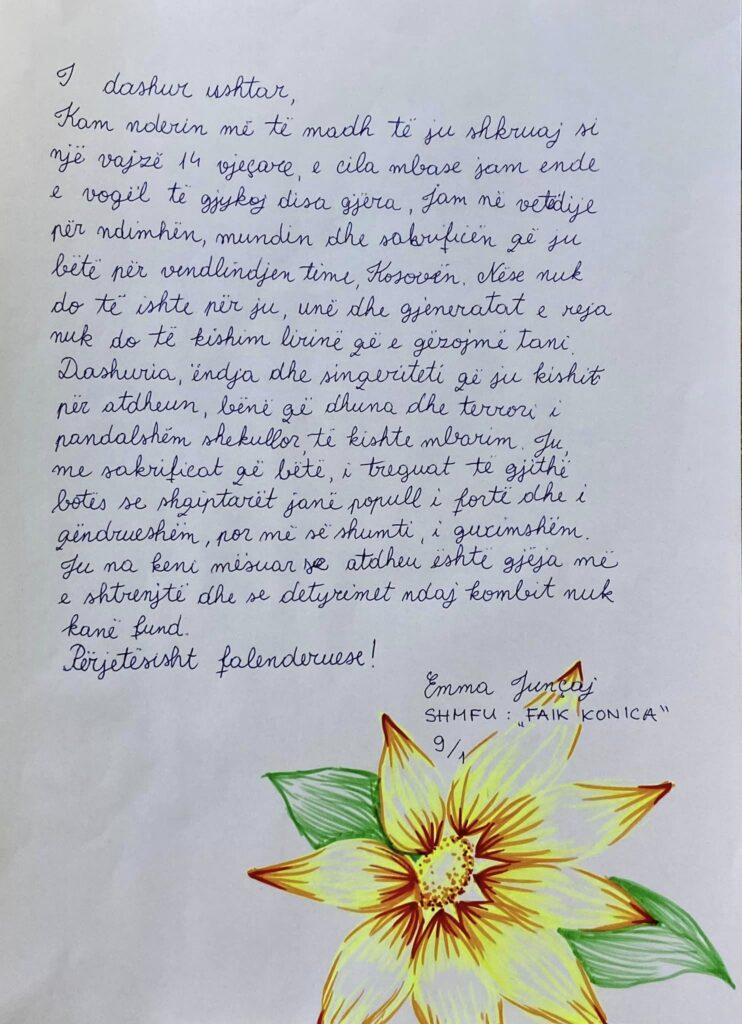 I dashur ushtar,
Kam nderin më të madh të ju shkruaj si
një vajzë 14 vjeçare, e cila mbase jam ende
e vogël të gjykoj disa gjëra, Jam në vetëdije
për ndimhën, mundin dhe sakrificën që ju
bëtë për vendlindjen time, Kosovën. Nëse nuk
do të ishte për ju, unë dhe gjeneratat e reja
nuk do të kishim lirinë që e gëzojmë tani.
Dashuria, ëndja dhe singeriteti që ju kishit
për atdheun, bënë që dhuna dhe terrori i
pandalshëm shekullor, të kishte mbarim. Ju,
me sakrificat që bëtë, i treguat të gjithë
botës se shqiptarët janë popull i fortë dhe i
qëndrueshëm, por më së shumti, i guximshëm.
Ju na keni mësuar se atdheu është gjëja më
e shtrenjtë dhe se detyrimet ndaj kombit nuk
kanë fund.
Përjetësisht falenderuese!
Emma Junçaj
SHMFU: „FAIK KONICA"
9/1